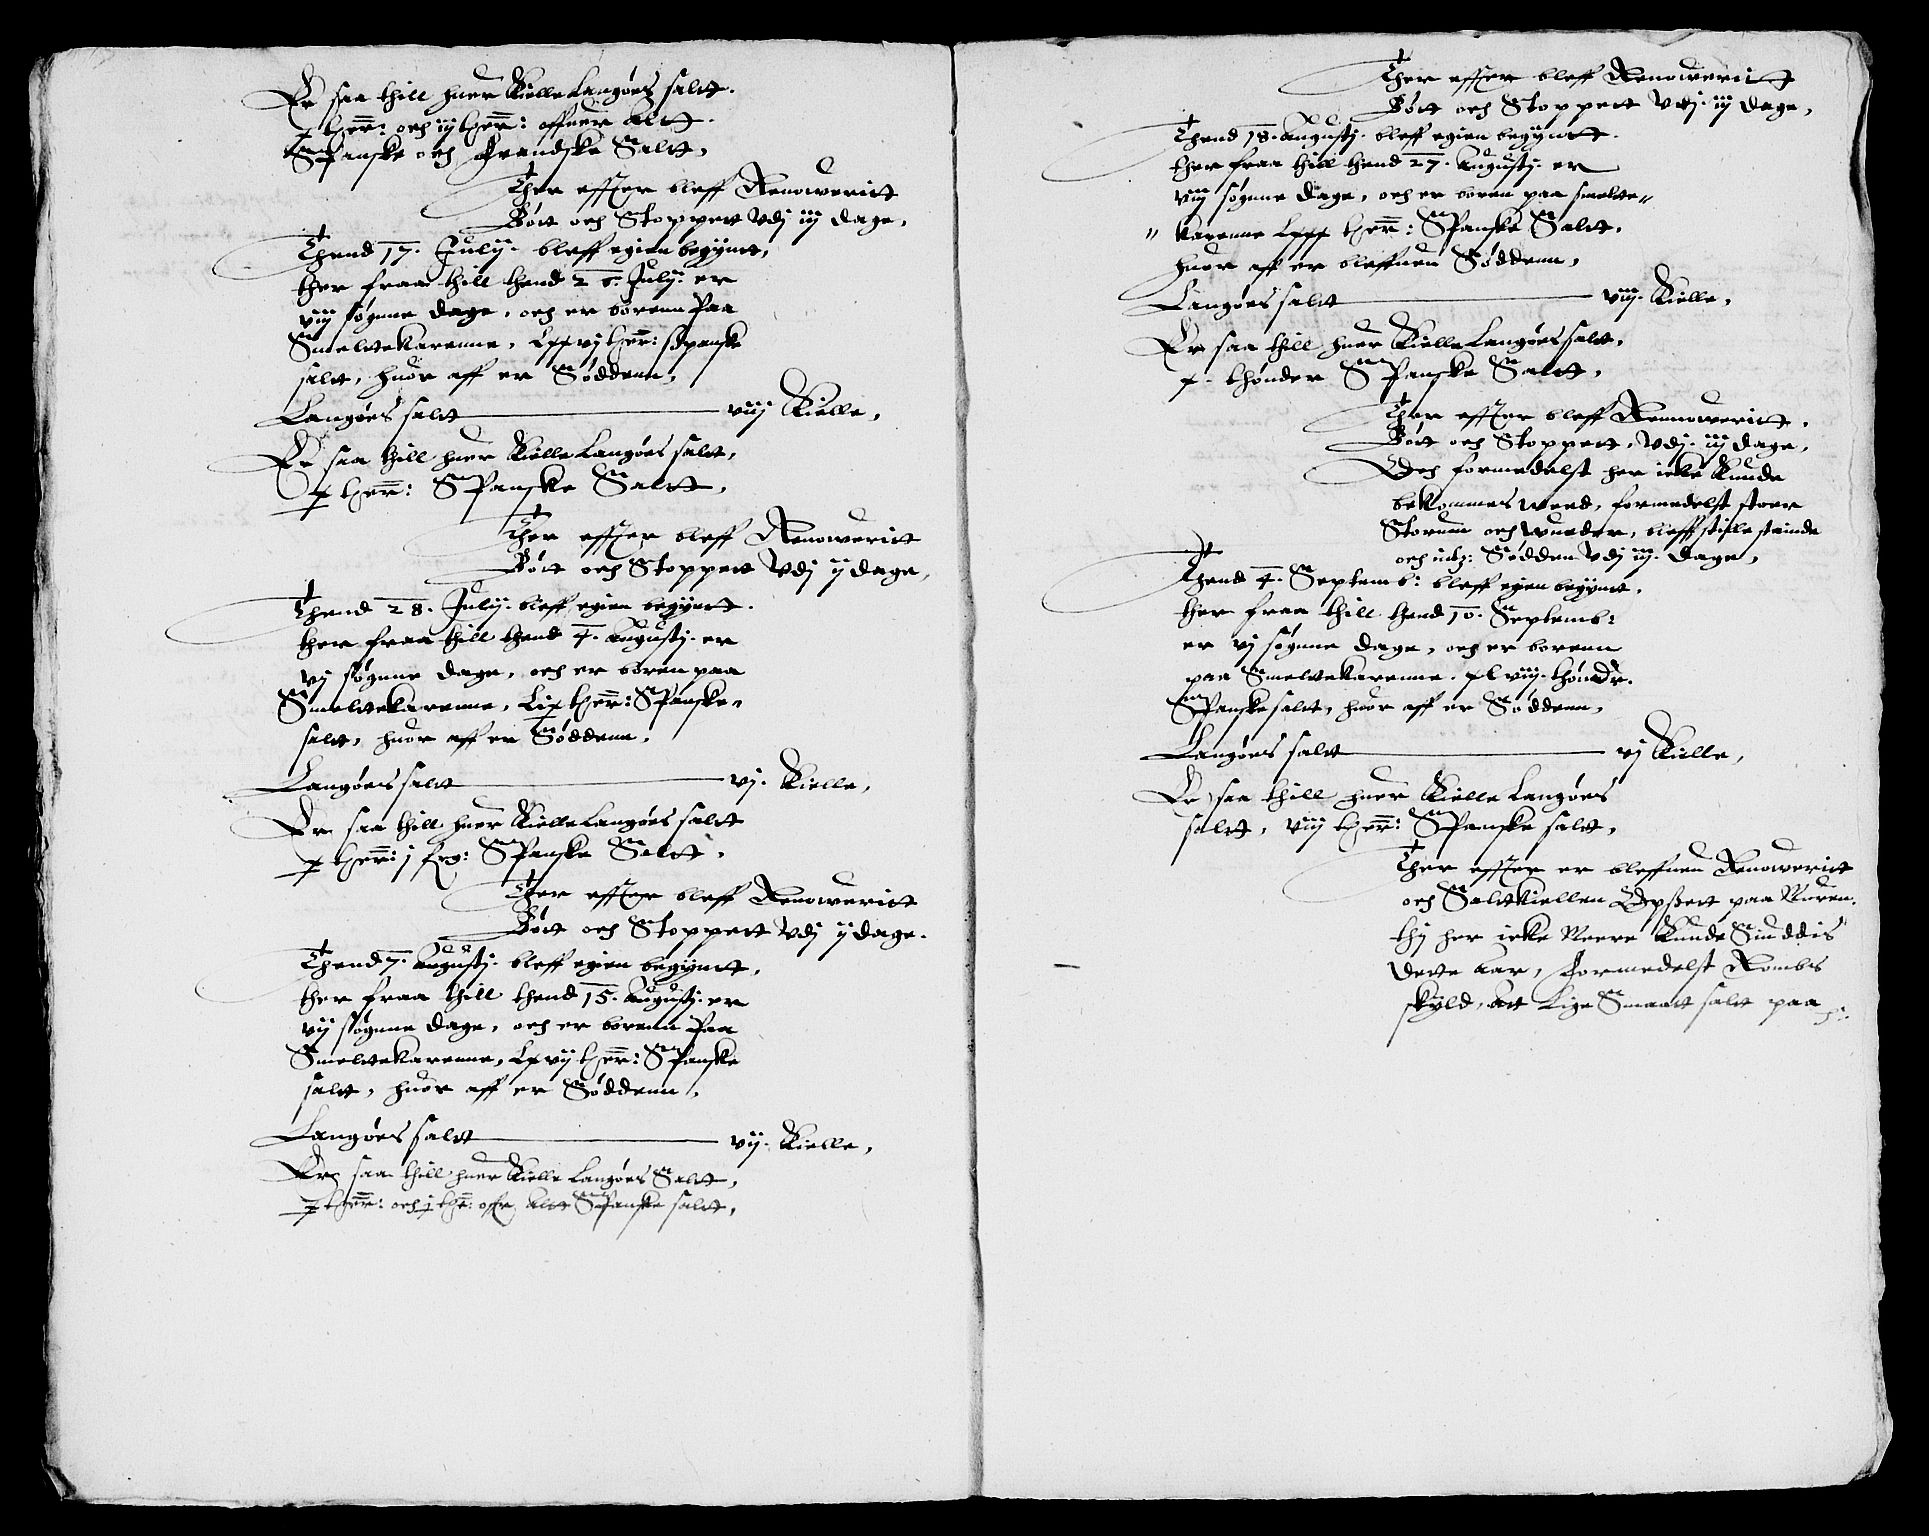 Er saa thill huer Kielle Langøes salt.
x thøer: och iij thøer: offuer alt
Spanske och Frandske Salt,
Ther effter bleff Renowerirt
Bøtt och Stoppett Vdj iij dage,
Thend 17. Julij. bleff egien begÿnt,
ther fraa thill thend 26. Julij. er
viij søgnne dage, och er boren Paa
Smeltekarenne, Lxxvj thøer: spanske
salt, huor aff er Søddenn,
Langøes salt viij Kielle,
Er saa thill huer Kielle Langøes salt,
x thøer: Spanske Salt,
Ther effter bleff Renowerirt
Bøtt och Stoppett Vdj ij dage,
Thend 28. Julij. bleff egien begÿnt.
ther fraa thill thend 4. Augustj. er
vj søgnne dage, och er boren paa
Smeltekarenne, Lix thøer: Spanske
salt, huor aff er Søddenn,
Langøes salt vj. Kielle,
Er saa thill huer Kielle Langøes salt
x thøer: j frg: Spanske Salt,
Ther effter bleff Renowerirt
Bøtt och Stoppett Vdj ij dage.
Thend 7. Augustj. bleff egien begÿnt,
ther fraa thill thend 15. Augustj. er
vij søgnne dage, och er boren Paa
Smeltekarenne, Lxvij thøer: Spanske
salt, huor aff er Søddenn,
Langøes salt vij. Kielle,
Er saa thill huer Kielle Langøes Salt,
x thøer: och j thø: offr alt Spanske salt,
Ther effter bleff Renowerirt
Bøtt och Stoppett Vdj. iij dage,
Thend 18. Augustj. bleff egien begÿnt.
ther fraa thill thend 27. Augustj. er
viij søgnne dage, och er boren paa smelte"
" karenne Lxxx thøer: Spanske Salt,
huor aff er bleffuen Søddenn,
Langøes salt viij. Kielle,
Er saa thill huer Kielle Langøes salt,
x. thønder Spanske Salt,
Ther effter bleff Renowerirt.
Bøtt och Stoppett, Vdj. iij dage,
Och formedelst her icke kunde
bekommes weed, formedelst stoer
Storm och wueder, bleff stille staende
och Sødden Vdj iij. dage,
Thend 4. Septemb: bleff egen begÿnt.
ther fraa thill thend 10. Septemb:
er vj søgnne dage, och er borenn
paa Smeltekarenne. xLviij. thøndr.
Spanske salt, huor aff er Søddenn,
Langøes salt vj Kielle,
Er saa thill huer Kielle Langøes
salt, viij thøer: Spanske salt,
Ther effter er bleffuen Renowerirt
och Saltkiellen Opsett paa Muren.
thj her icke Meere kunde Siuddis
dette Aar, Formedelst Rombs
skÿld, Att Lige Smaat salt paa